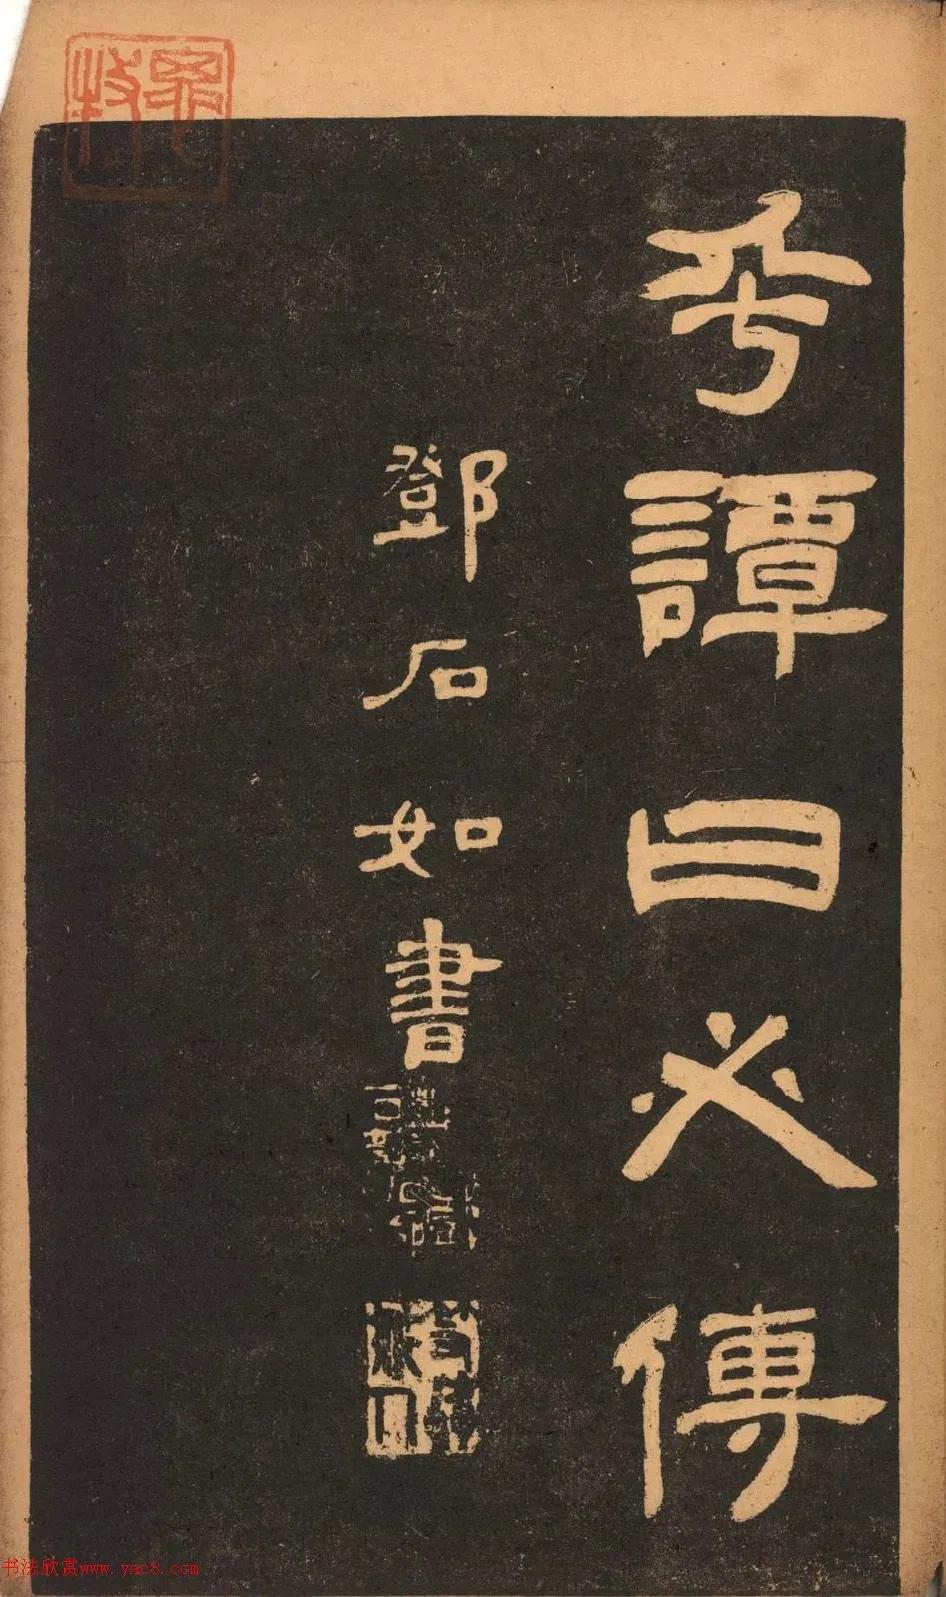 乎譚曰必傳
鄧石如書
书法欣赏www.yac8.com